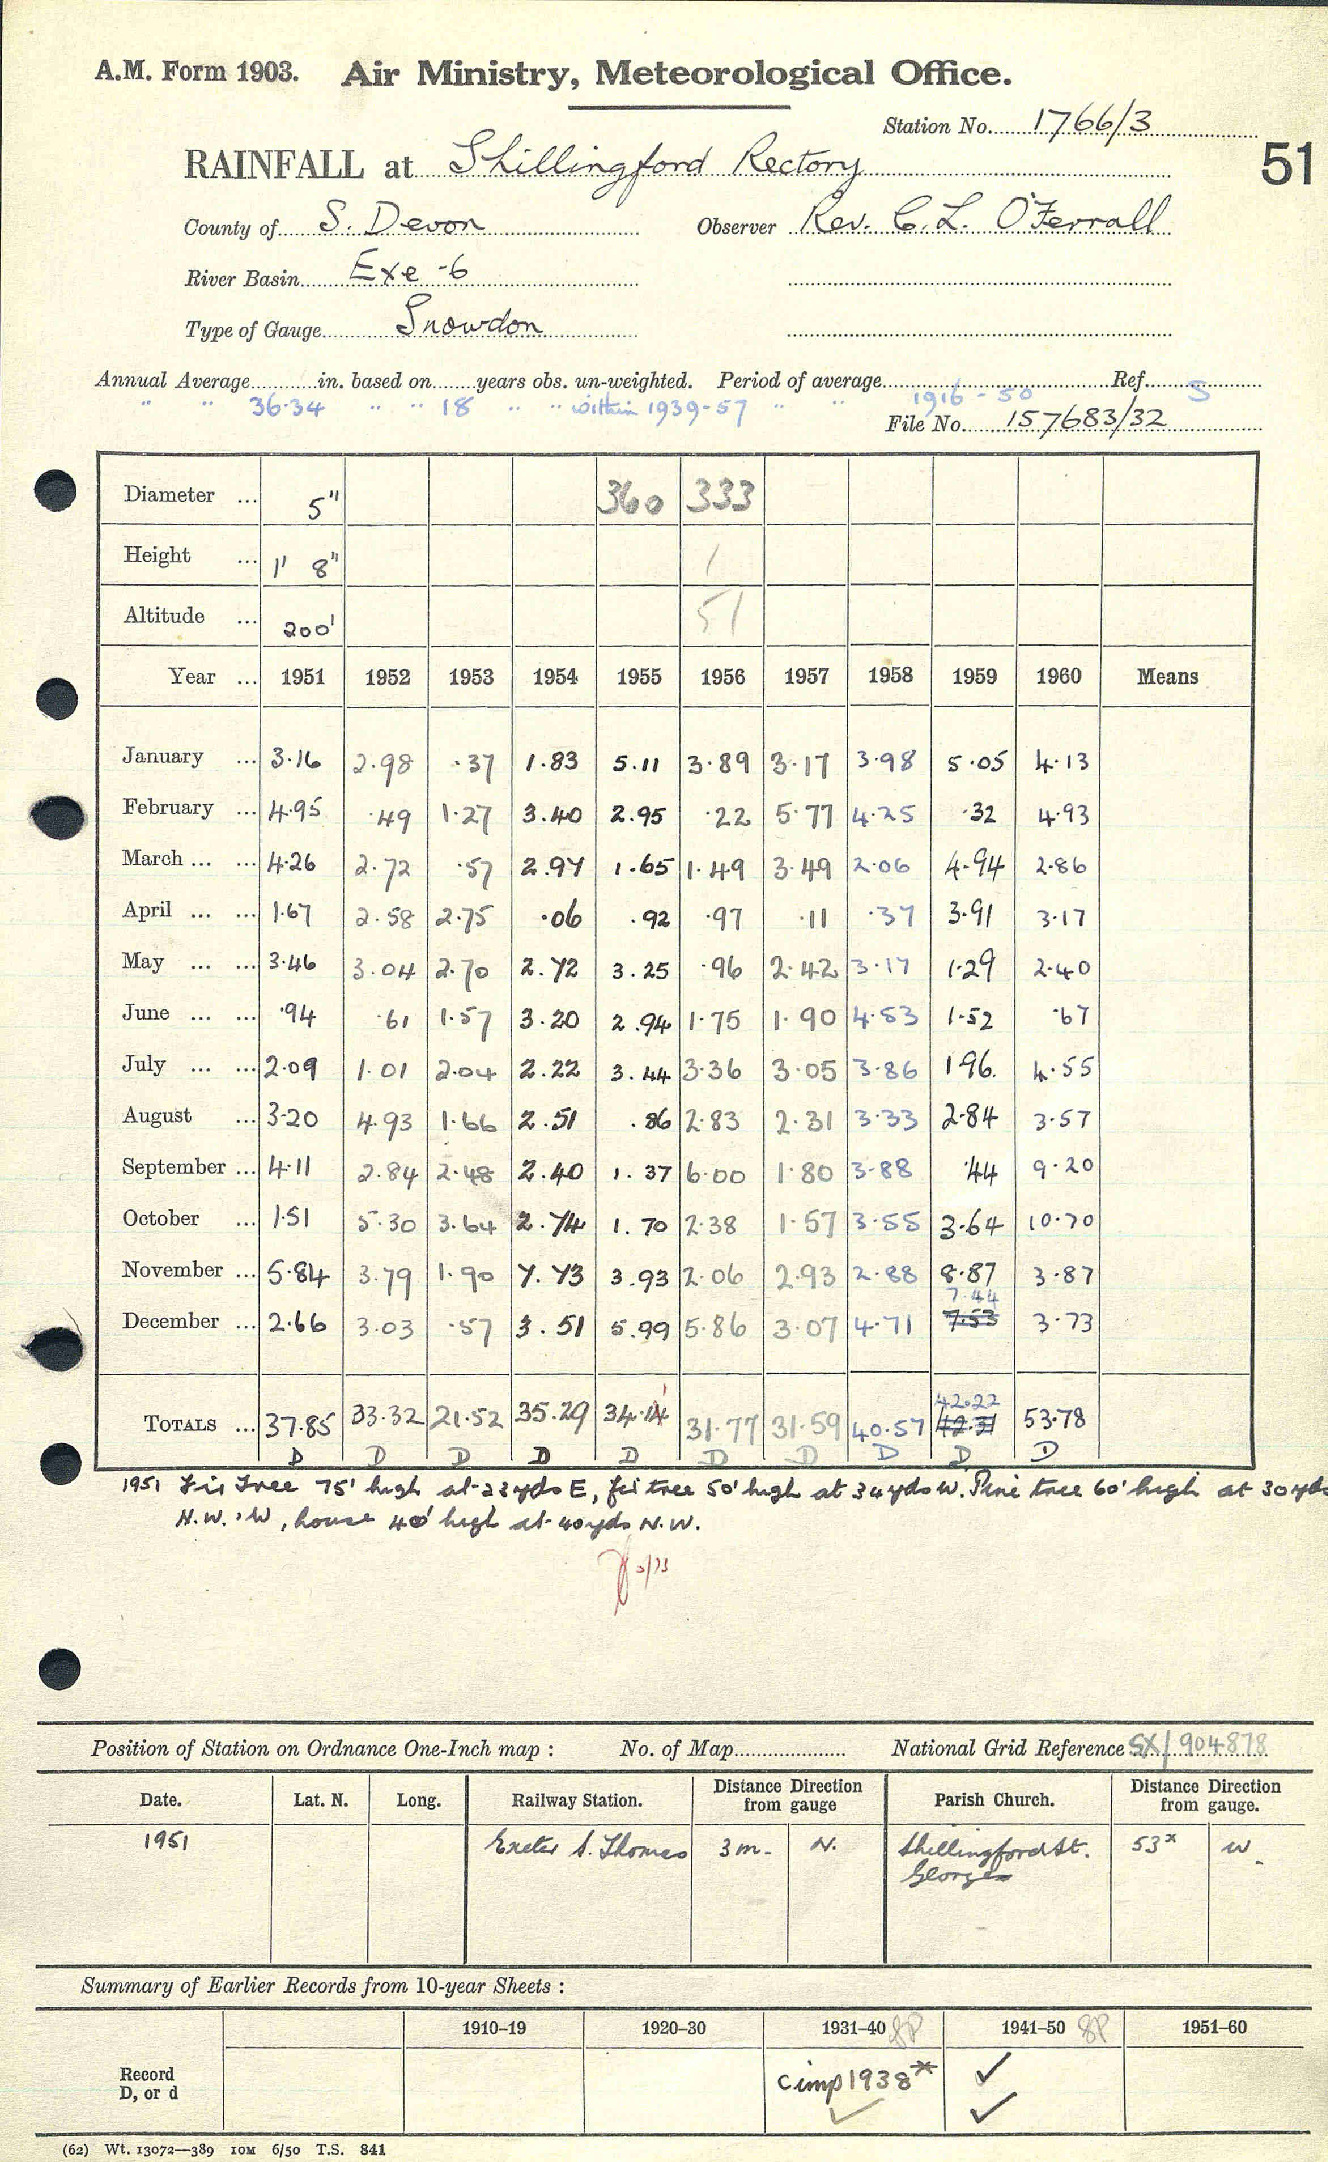 A.M. Form 1903. Air Ministry, Meteorological Office.
Station No. 1766/3
51
RAINFALL at Shillingford Rectory
County of S. Devon Observer Rev. C. L. O'Ferrall
River Basin Exe -6
Type of Gauge Snowdon
Annual Average in. based on years obs. un-weighted. Period of average 1916-50 Ref. S
" " 36.34 " " 18 " " within 1939-57 " "
File No. 157683/32
Diameter ... 5" 360 333
Height ... 1' 8" 1
Altitude ... 200' 51
Year ... 1951 1952 1953 1954 1955 1956 1957 1958 1959 1960 Means
January ... 3.16 2.98 .37 1.83 5.11 3.89 3.17 3.98 5.05 4.13
February ... 4.95 .49 1.27 3.40 2.95 .22 5.77 4.25 .32 4.93
March ... ... 4.26 2.72 .57 2.97 1.65 1.49 3.49 2.06 4.94 2.86
April ... ... 1.67 2.58 2.75 .06 .92 .97 .11 .37 3.91 3.17
May ... ... 3.46 3.04 2.70 2.72 3.25 .96 2.42 3.17 1.29 2.40
June ... ... .94 .61 1.57 3.20 2.94 1.75 1.90 4.53 1.52 .67
July ... ... 2.09 1.01 2.04 2.22 3.44 3.36 3.05 3.86 1.96 4.55
August ... 3.20 4.93 1.66 2.51 .86 2.83 2.31 3.33 2.84 3.57
September ... 4.11 2.84 2.48 2.40 1.37 6.00 1.80 3.88 .44 9.20
October ... 1.51 5.30 3.64 2.74 1.70 2.38 1.57 3.55 3.64 10.70
November ... 5.84 3.79 1.90 7.73 3.93 2.06 2.93 2.88 8.87 3.87
7.44
December ... 2.66 3.03 .57 3.51 5.99 5.86 3.07 4.71 7.53 3.73
42.22
TOTALS ... 37.85 33.32 21.52 35.29 34.11 31.77 31.59 40.57 42.31 53.78
D D D D D D D D D D
1951 Fir tree 75' high at 23 yds E, fir tree 50' high at 34 yds W. Pine tree 60' high at 30 yds
N.W. 'W, house 40' high at 40 yds N.W.
Position of Station on Ordnance One-Inch map : No. of Map National Grid Reference SX/904878
Date. Lat. N. Long. Railway Station. Distance from gauge Direction Parish Church. Distance from gauge. Direction
1951 Exeter S. Thomas 3 m. N. Shillingford St. 53x W
George
Summary of Earlier Records from 10-year Sheets :
1910–19 1920–30 1931–40 8P 1941–50 8P 1951–60
Record
D, or d
c imp 1938* ✓
✓ ✓
(62) Wt. 13072—389 10M 6/50 T.S. 841